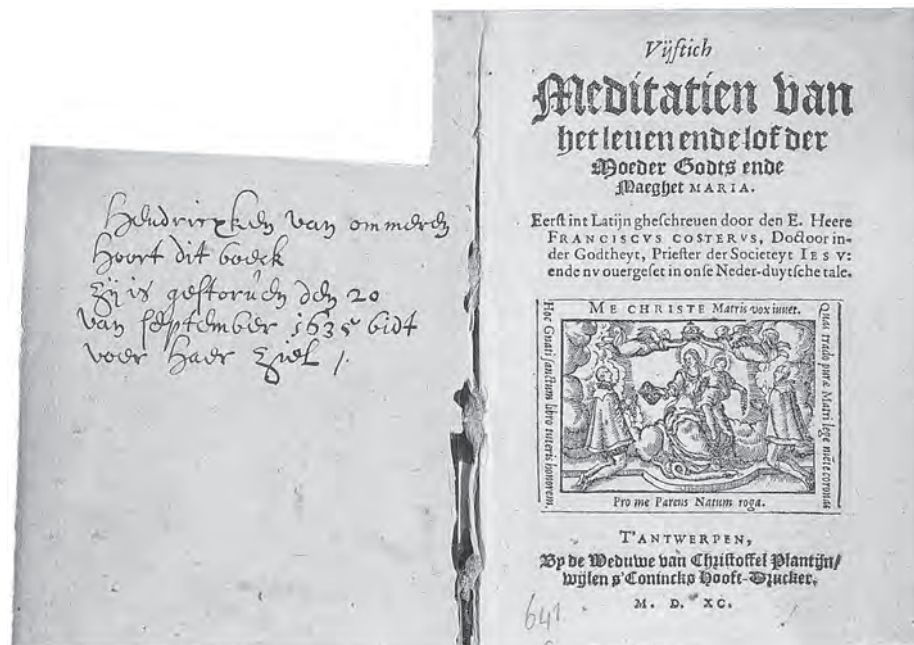 Hendricxken van ommeren
hoort dit boeck
zij is gestorven den 20
van september 1635 bidt
voer haer ziel /
Vijftich
Meditatien van
het leuen ende lof der
Moeder Godts ende
Maeghet MARIA.
Eerst int Latijn gheschreuen door den E. Heere
FRANCISCVS COSTERVS, Doctoor in-
der Godtheyt, Priester der Societeyt IESV:
ende nv ouergeset in onse Neder-duytsche tale.
ME CHRISTE Matris vox iuuet.
Hoc Gnati sanctum libro tueris honorem.
Quas trado puræ Matri lege mēte coronas
Pro me Parens Natum roga.
T'ANTWERPEN,
By de Weduwe van Christoffel Plantijn/
wijlen s'Conincks Hooft-Drucker.
M. D. XC.
641